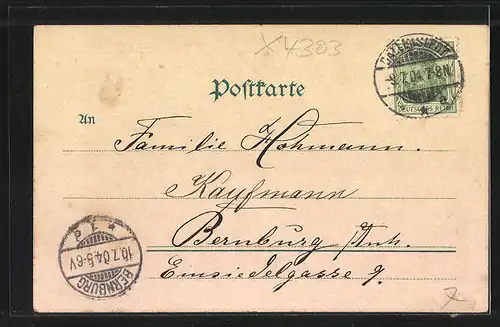 x4303
Postkarte
An
Familie Hohmann.
Kaufmann
Bernburg /Anh.
Einsiedelgasse 9.
DEUTSCHES REICH
7-8N
BERNBURG
10.7.04.5-6V